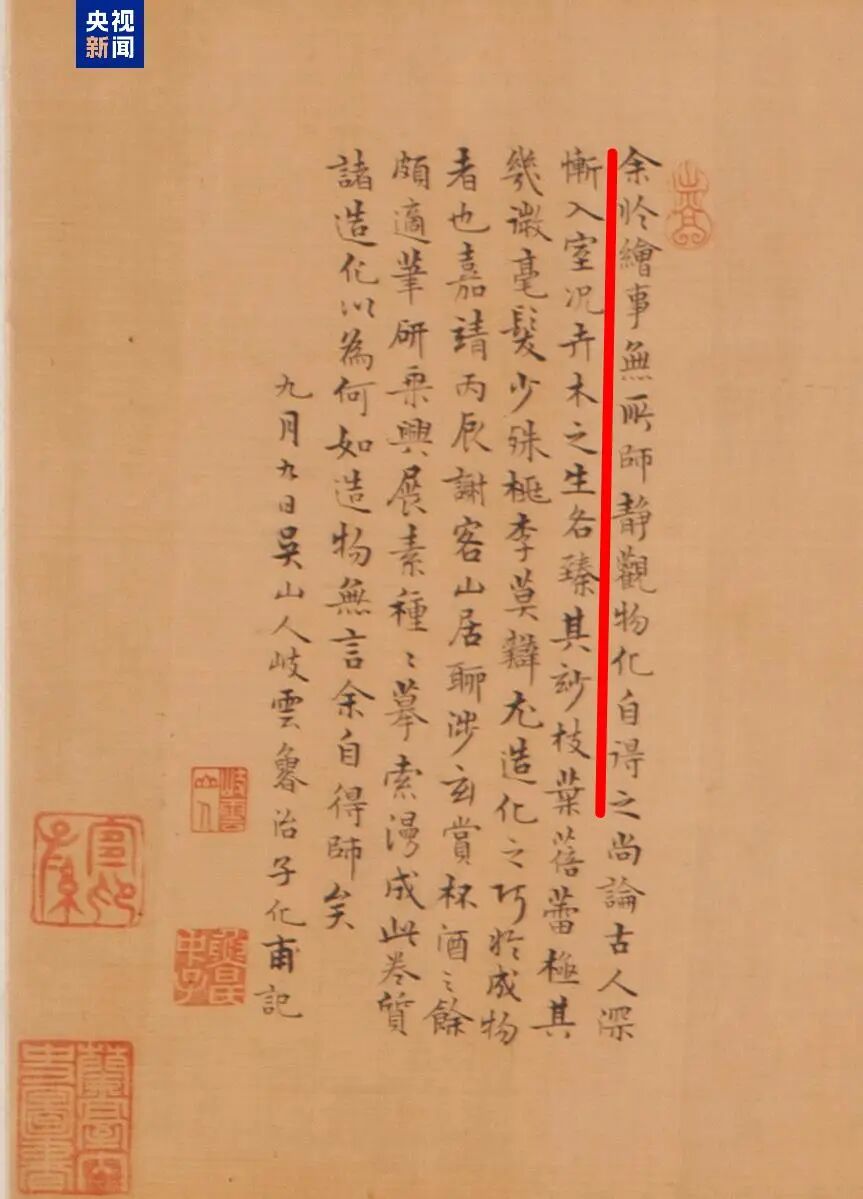 央视
新闻
余於繪事無所師靜觀物化自得之尚論古人深
慚入室况卉木之生各臻其玅枝葉蓓蕾極其
幾微毫髮少殊桃李莫辯尤造化之巧於成物
者也嘉靖丙辰謝客山居聊涉玄賞杯酒之餘
頗適筆研乘興展素種〻摹索漫成此卷質
諸造化以為何如造物無言余自得師矣
九月九日吳山人岐雲魯治子化甫記
岐雲山人